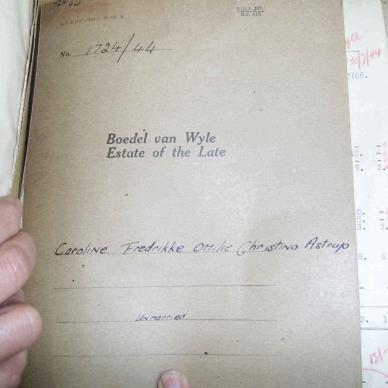 No. 1724/44
Boedel van Wyle
Estate of the Late
Caroline Fredrikke Ottilie Christina Astrup
Unmarried